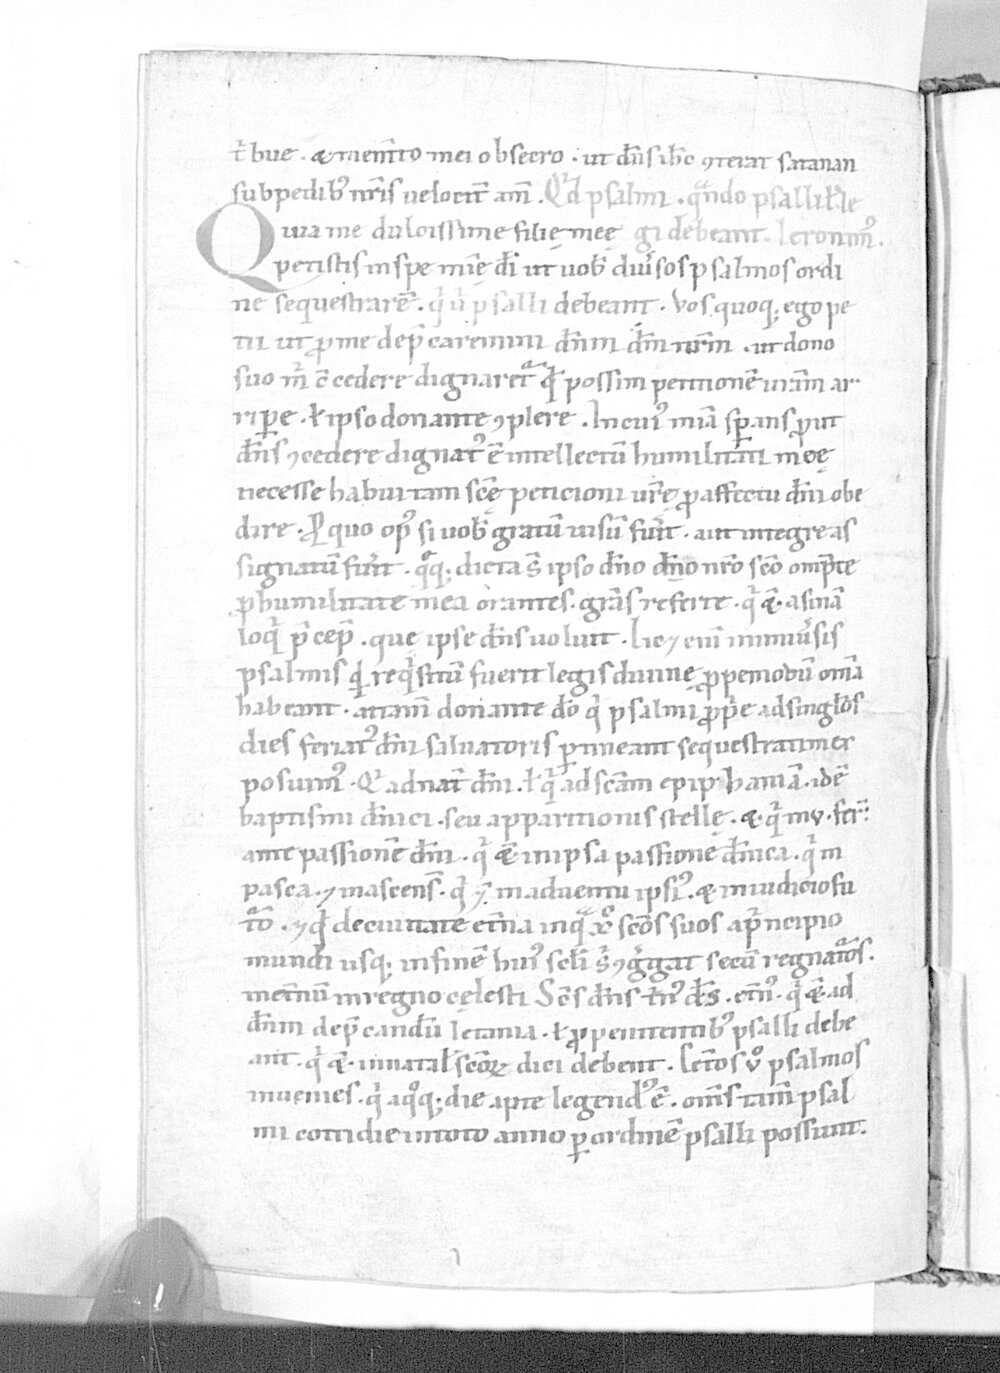 t̄bue · & mem̄to mei obsecro · ut dn̄s ih̄c ꝯterat satanan
sub pedibꝰ nr̄is velocit̄ am̄ . Qd̄ psalmi · qn̄do psalli ł le
Quia me dulcissime filię meę gi debeant · Ieronimꝰ .
petistis in spe mię di̅ ut uob̄ diu̅sos psalmos ordi
ne sequestrare̅ · q̄ u̅ psalli debeant · Vos quoq; ego pe
tii ut ꝓ me dep̄caremini dn̄m dm̄ nr̄m · ut dono
suo m̄ ꝯcedere dignaret̄ possim petitione̅ uram̅ ar
ripe̅ · ł ipso donante ꝯplere · In cuiꝰ mia̅ sp̄ans ꝓut
dn̄s ꝯcedere dignatꝰ e̅ intellectu̅ humilitati meę
necesse habui tam sc̄ę peticioni ur̄ę ꝓ affectu dn̄i obe
dire · Pro quo opꝰ si uob̄ gratu̅ uisu̅ fu̅it · aut integre as
signatu̅ fu̅it · dicta s̄ ipso dn̄o dn̄o nr̄o sc̄o omp̄te
ꝓ humilitate mea orantes · gra̅s referte · q̄ & asina̅
loq̄ p̄cep̄ · quę ipse dn̄s uoluit · Lic& eni̅ in uniu̅sis
psalmis qd̄ req̄situ̅ fuerit legis diuinę ꝓpemodu̅ om̄ia
habeant · attam̅ donante do̅ q̄ psalmi ꝓp̄e ad singlo̅s
dies feriatꝰ dn̄i saluatoris ꝑtineant sequestratim ex
posuimꝰ · Q̄ ad nat̄ dn̄i · ł q̄ ad sc̄am epiphania̅ · ide̅
baptismi dn̄ici · seu apparitionis stellę · & q̄ in v · fer̄
ante passione̅ dn̄i · q̄ & in ipsa passione dn̄ica · q̄ in
pasca · & in ascens̄ · q̄ & in aduentu ipsiꝰ · & in iudicio fu
t̄o · & qd̄ de ciuitate et̄na in q̄ xp̄o sc̄os suos a p̄ncipio
mundi usq; in fine̅ huiꝰ scl̄i s̄ ꝯg̅gat secu̅ regnat̄os ·
in et̄nu̅ in regno cęlesti Sc̄s dn̄s t̄nꝰ ds̄ · et̄nꝰ · q̄ & ad
dn̄m dep̄candu̅ lętania · ł ꝓ penitentibꝰ psalli debe
ant · q̄ & in natal̄ sc̄oꝝ dici debent · Lc̄tos u̅o psalmos
inuenies · q̄ aq̄q; die apte legendꝰ e̅ · om̄s tam̅ psal
mi cottidie in toto anno ꝑ ordine̅ psalli possunt.